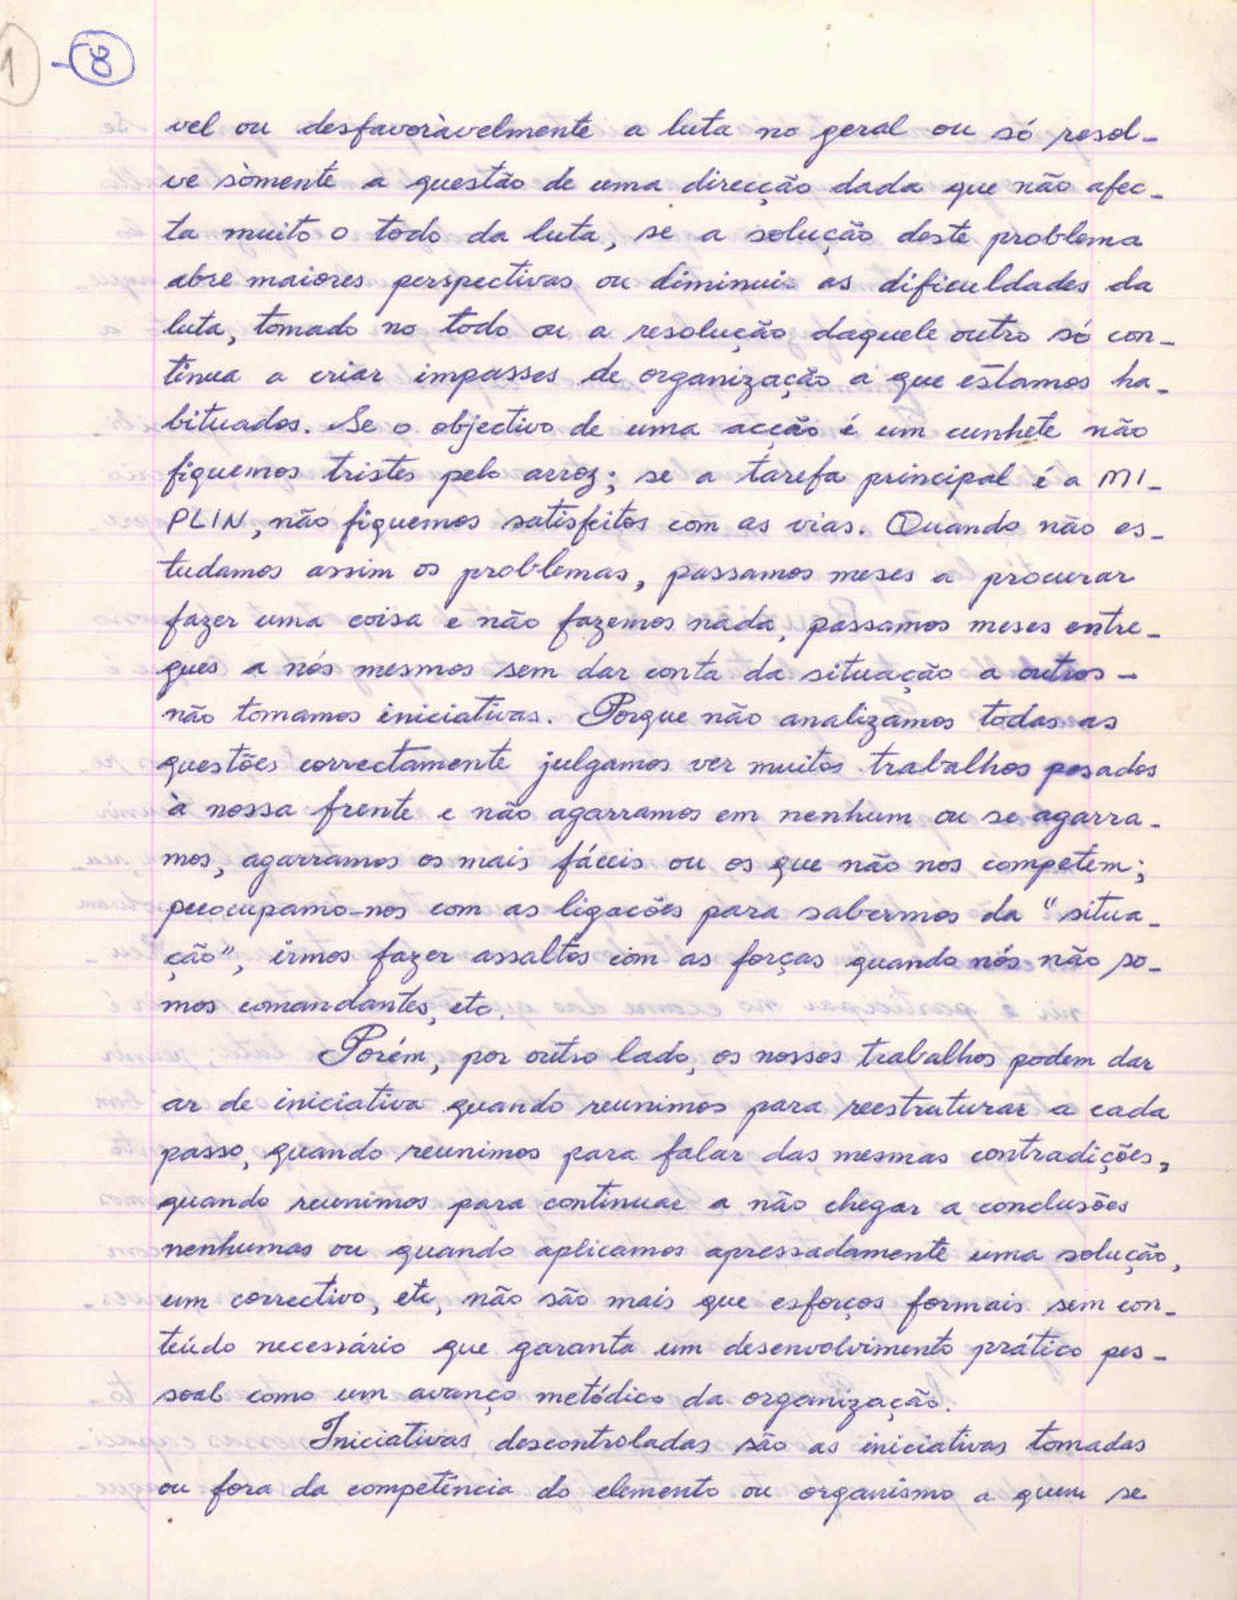 1
- 8
vel ou desfavoràvelmente a luta no geral ou só resol-
ve sòmente a questão de uma direcção dada que não afec-
ta muito o todo da luta, se a solução deste problema
abre maiores perspectivas ou diminui as dificuldades da
luta, tomado no todo ou a resolução daquele outro só con-
tinua a criar impasses de organização a que estamos ha-
bituados. Se o objectivo de uma acção é um cunhete não
fiquemos tristes pelo arroz; se a tarefa principal é a MI-
PLIN, não fiquemos satisfeitos com as vias. Quando não es-
tudamos assim os problemas, passamos meses a procurar
fazer uma coisa e não fazemos nada, passamos meses entre-
gues a nós mesmos sem dar conta da situação a outros -
não tomamos iniciativas. Porque não analizamos todas as
questões correctamente julgamos ver muitos trabalhos pesados
à nossa frente e não agarramos em nenhum ou se agarra-
mos, agarramos os mais fáceis ou os que não nos competem;
peocupamo-nos com as ligacões para sabermos da "situa-
ção", irmos fazer assaltos com as forças quando nós não so-
mos comandantes, etc.
Porém, por outro lado, os nossos trabalhos podem dar
ar de iniciativa quando reunimos para reestruturar a cada
passo, quando reunimos para falar das mesmas contradições,
quando reunimos para continuar a não chegar a conclusões
nenhumas ou quando aplicamos apressadamente uma solução,
um correctivo, etc, não são mais que esforços formais sem con-
teúdo necessário que garanta um desenvolvimento prático pes-
soal como um avanço metódico da organização.
Iniciativas descontroladas são as iniciativas tomadas
ou fora da competência do elemento ou organismo a quem se